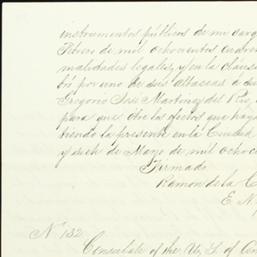 instrumentos públicos de mi cargo
Febrero de mil ochocientos cuaren
malidades legales, y en la clausu
bró por uno de sus albaceas á du
Gregorio José Martinez del Rio,
para que obre los efectos que haya
tiendo la presente en la Ciudad
y siete de Marzo de mil ochoc
Firmado
Ramon de la C
E. N. P
No. 132
Consulate of the U. S. of Am